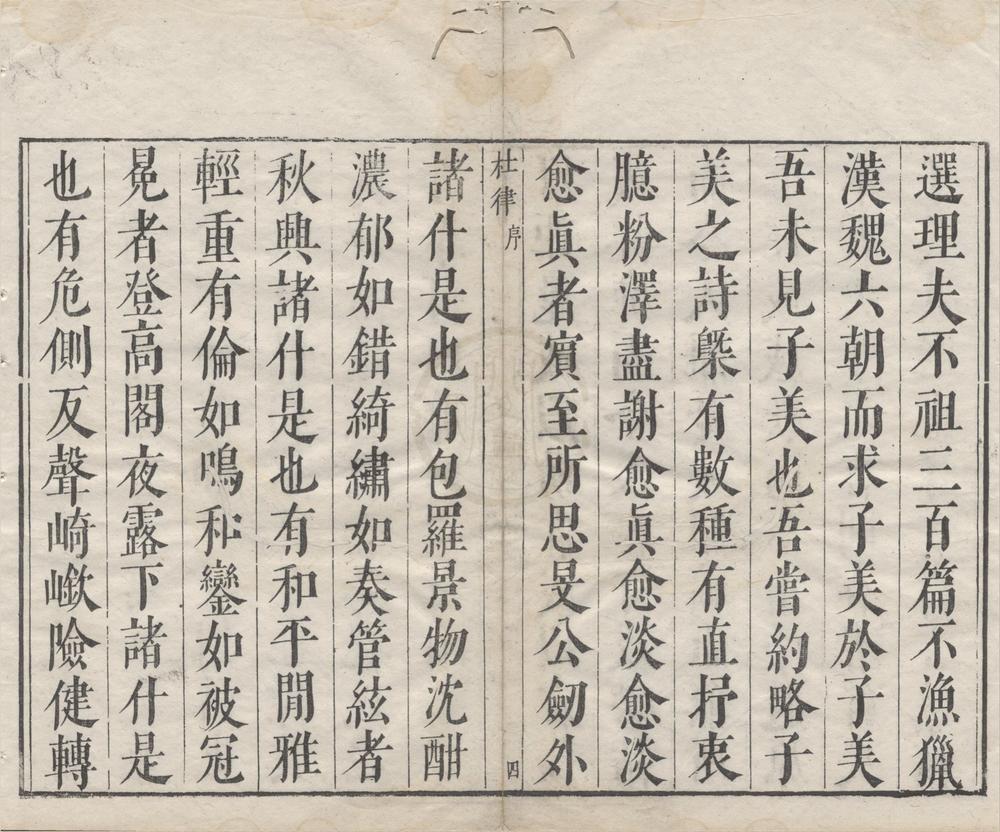 選理夫不祖三百篇不漁獵
漢魏六朝而求子美於子美
吾未見子美也吾嘗約略子
美之詩槩有數種有直抒衷
臆粉澤盡謝愈眞愈淡愈淡
愈眞者賓至所思旻公劒外
杜律序
四
諸什是也有包羅景物沈酣
濃郁如錯綺繡如奏管絃者
秋興諸什是也有和平閒雅
輕重有倫如鳴和鑾如被冠
冕者登高閣夜露下諸什是
也有危側反聲崎嶔險健轉